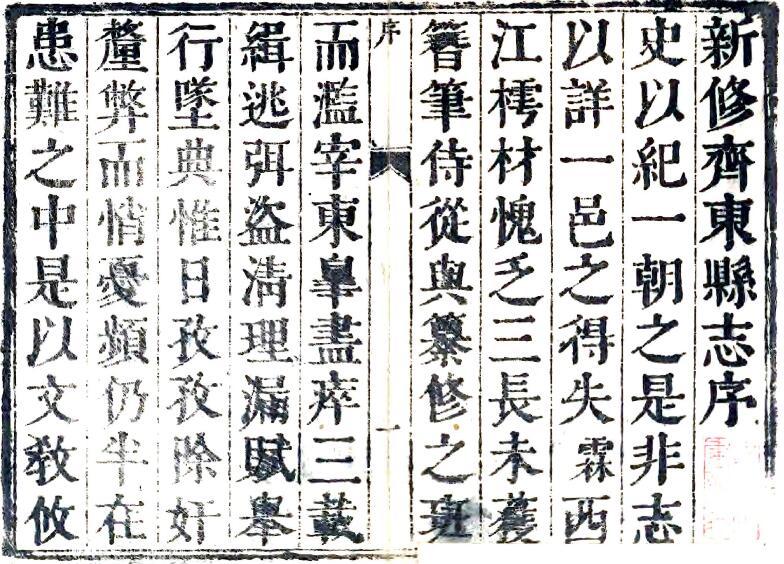 新修齊東縣志序
史以紀一朝之是非志
以詳一邑之得失霖西
江樗材愧乏三長未獲
簪筆侍從與纂修之班
序
一
而濫宰東皐盡瘁三載
緝逃弭盜清理漏賦舉
行墜典惟日孜孜除奸
釐弊而悄憂頻仍半在
患難之中是以文敎攸